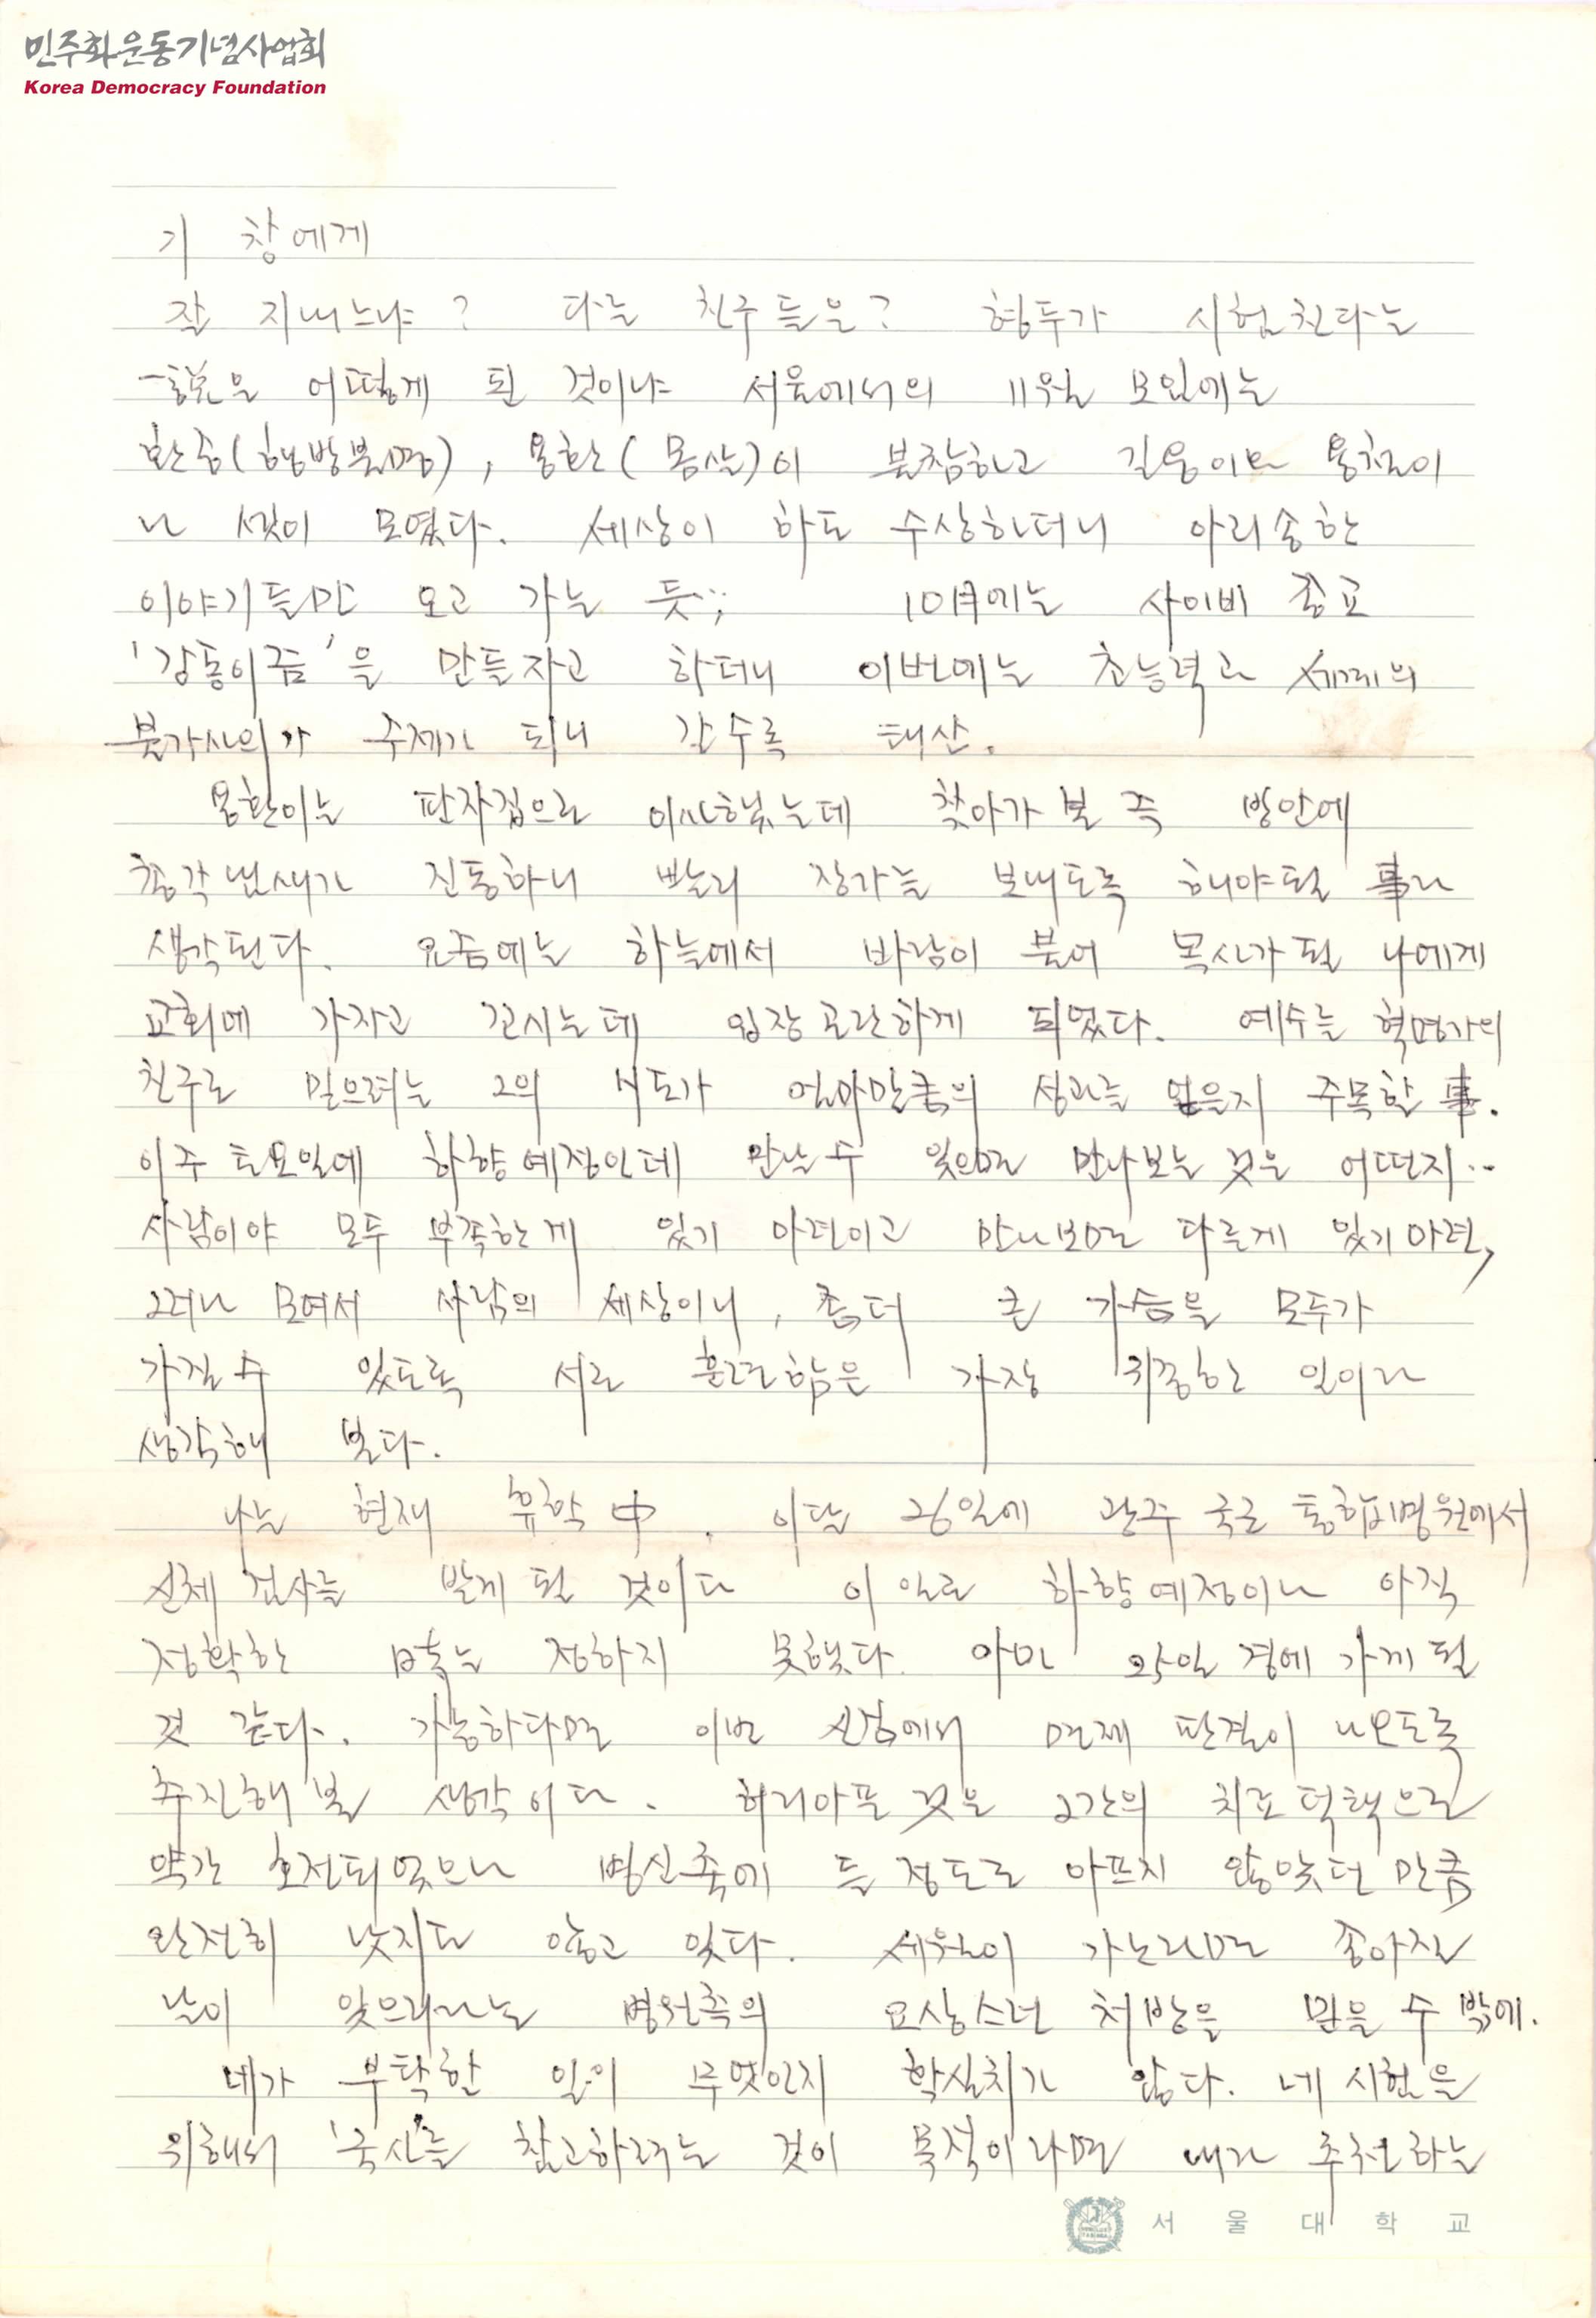 민주화운동기념사업회
Korea Democracy Foundation
기 창에게
잘 지내느냐? 다들 친구들은? 형두가 시험친다는
것은 어떻게 된 것이냐 서울에서의 11월 모임에는
환중(행방불명), 용환(몸살)이 불참하고 길웅이와 용철이
나 셋이 모였다. 세상이 하도 수상하더니 아리송한
이야기들만 오고 가는 듯; 10月에는 사이비 종교
'감동이즘'을 만들자고 하더니 이번에는 초능력과 세계의
불가사의가 주제가 되니 갈수록 태산.
용환이는 판자집으로 이사했는데 찾아가 본 즉 방안에
총각냄새가 진동하니 빨리 장가를 보내도록 해야될 事라
생각된다. 요즘에는 하늘에서 바람이 불어 목사가 될 나에게
교회에 가자고 꼬시는데 입장곤란하게 되었다. 예수를 혁명가의
친구로 믿으려는 그의 시도가 얼마만큼의 성과를 얻을지 주목할 事.
이주 토요일에 하향예정인데 만날 수 있으면 만나보는 것은 어떤지..
사람이야 모두 부족한게 있기 마련이고 만나보면 다르게 있기 마련,
그러나 모여서 사람의 세상이니, 좀더 큰 가슴을 모두가
가질 수 있도록 서로 훈련함은 가장 귀중한 일이라
생각해 본다.
나는 현재 휴학中. 이달 26일에 광주 국군 통합병원에서
신체 검사를 받게 될 것이다 이 일로 하향예정이나 아직
정확한 날짜는 정하지 못했다. 아마 일경에 가게 될
것 같다. 가능하다면 이번 신검에서 면제 판결이 나오도록
추진해 볼 생각이다. 허리아픈 것은 그간의 치료 덕택으로
약간 호전되었으나 병신축에 들 정도로 아프지 않았던 만큼
완전히 낫지도 않고 있다. 세월이 가노라면 좋아질
날이 있으리라는 병원측의 요상스런 처방을 믿을 수 밖에.
네가 부탁한 일이 무엇인지 확실치가 않다. 네 시험을
위해서 '국사'를 참고하려는 것이 목적이라면 내가 추천하는
서울대학교